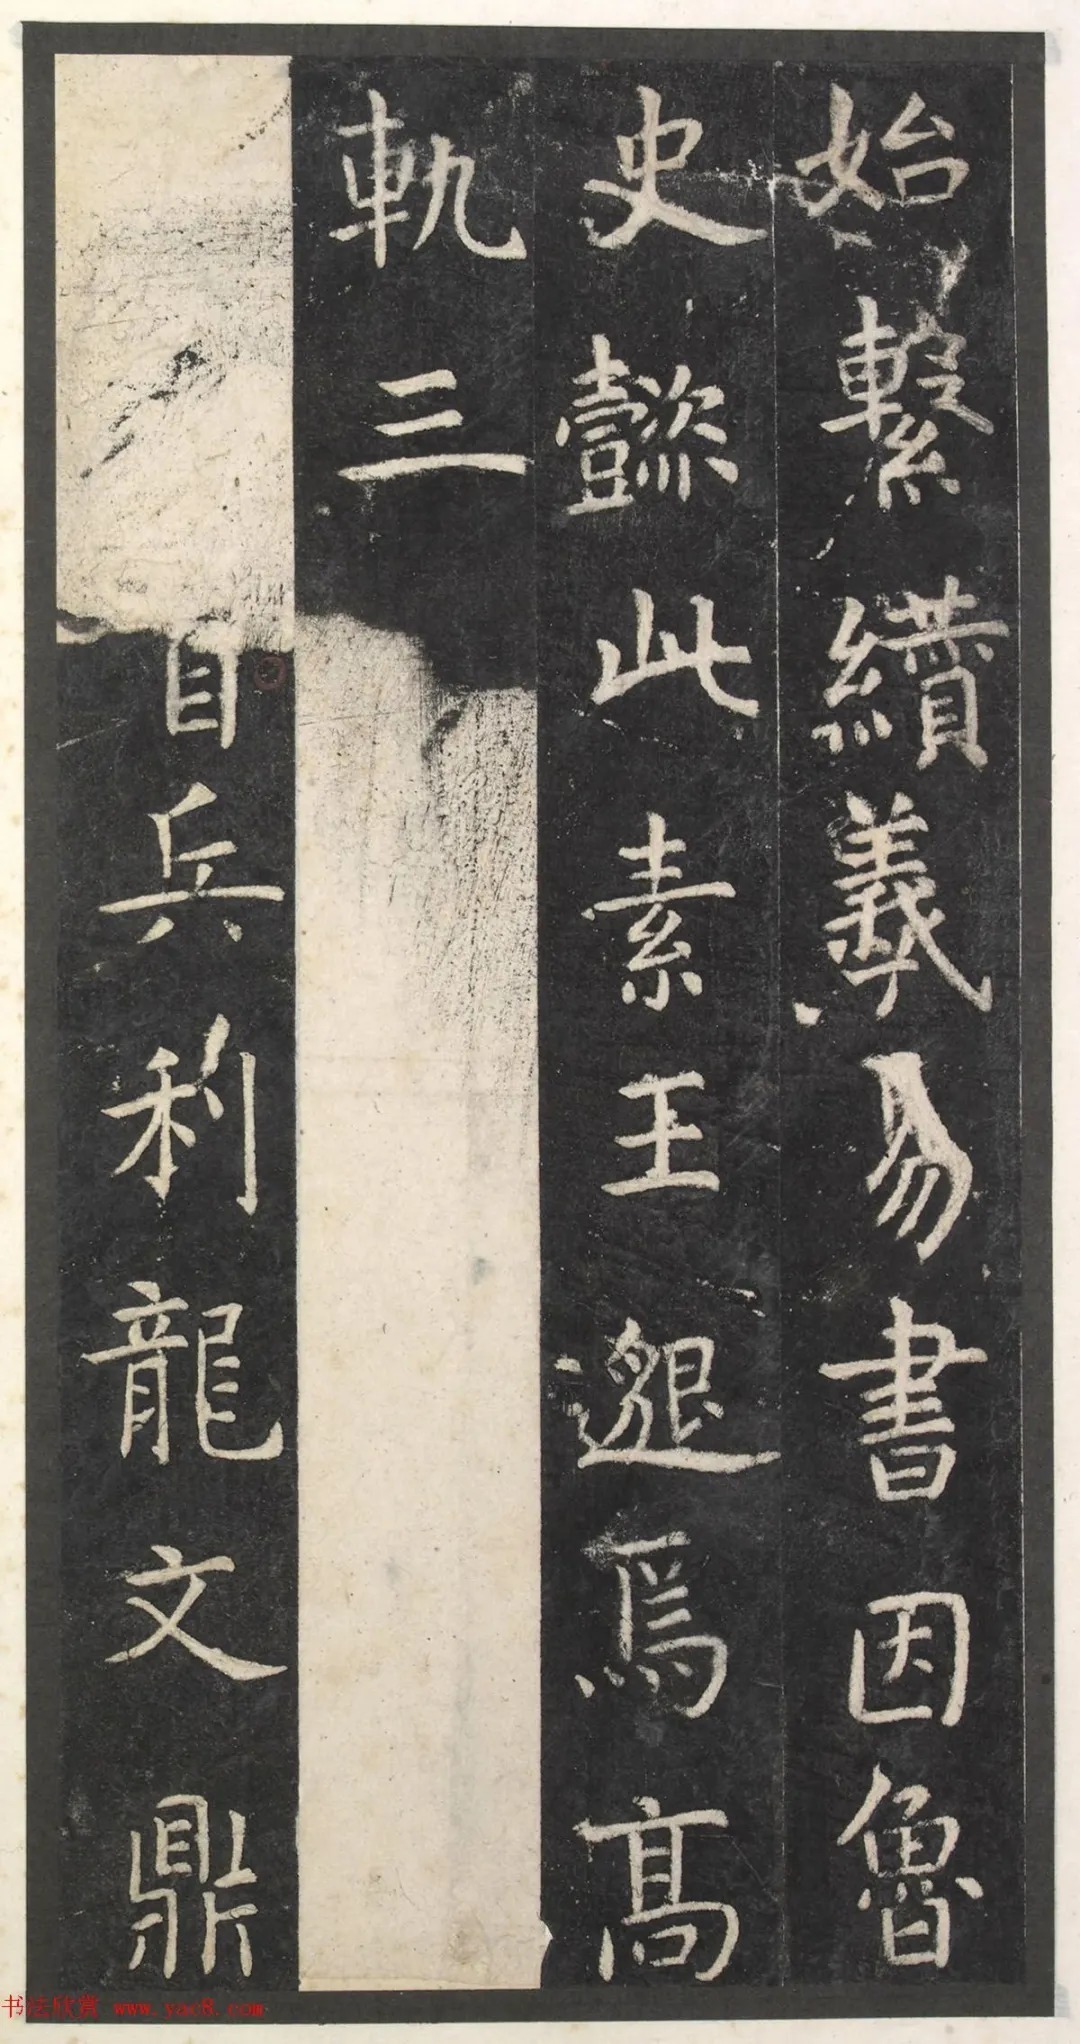 始繫纘羲易書因魯
史懿此素王邈焉高
軌三
目兵利龍文鼎
书法欣赏 www.yac8.com